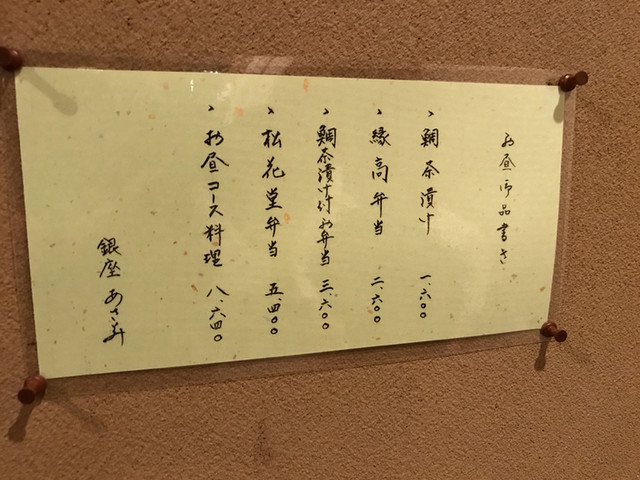 お昼御品書き
、鯛茶漬け 一、六〇〇
、縁高弁当 二、六〇〇
、鯛茶漬け付お弁当 三、六〇〇
、松花堂弁当 五、四〇〇
、お昼コース料理 八、六四〇
銀座 あさみ